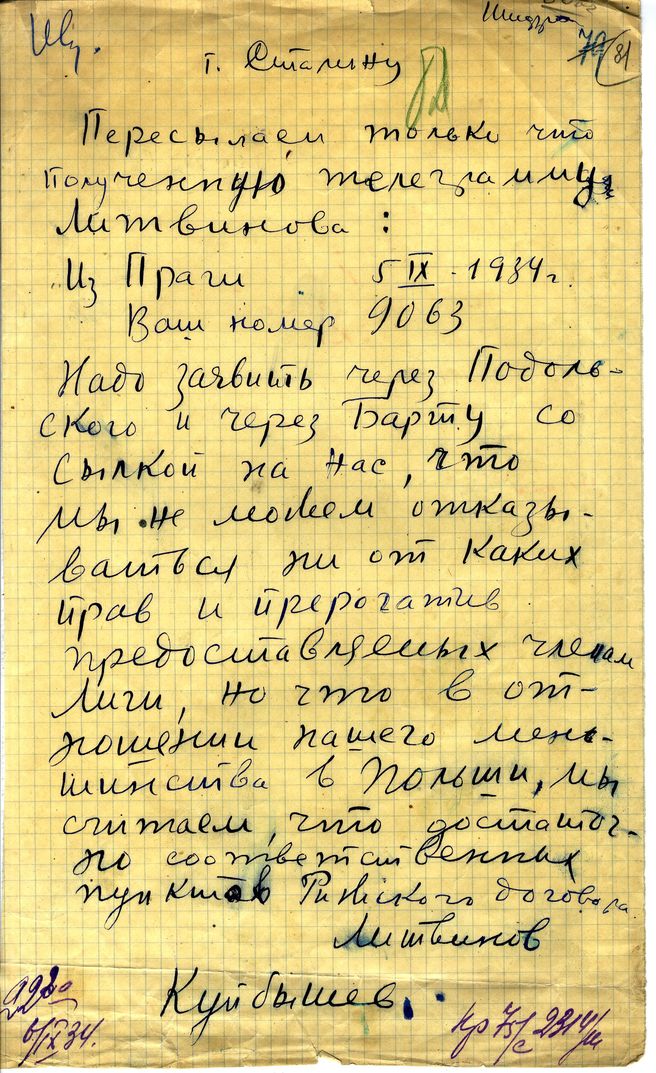 Шифром
81
т. Сталину
Пересылаем только что
полученную телеграмму
Литвинова:
Из Праги 5 IX - 1934 г.
Ваш номер 9063
Надо заявить через Подоль-
ского и через Барту со
сылкой на нас, что
мы не можем отказы-
ваться ни от каких
прав и прерогатив
предоставляемых членам
Лиги, но что в от-
ношении нашего мень-
шинства в Польши, мы
считаем, что достаточ-
но соответственных
пунктов Рижского договора
Литвинов
Куйбышев.
6/IX 34.